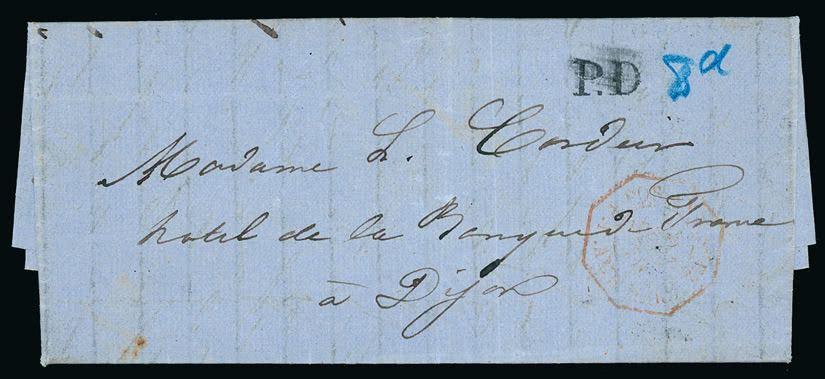 P.D 8d
Madame L. Cordier
hotel de la Banque de France
à Dijon